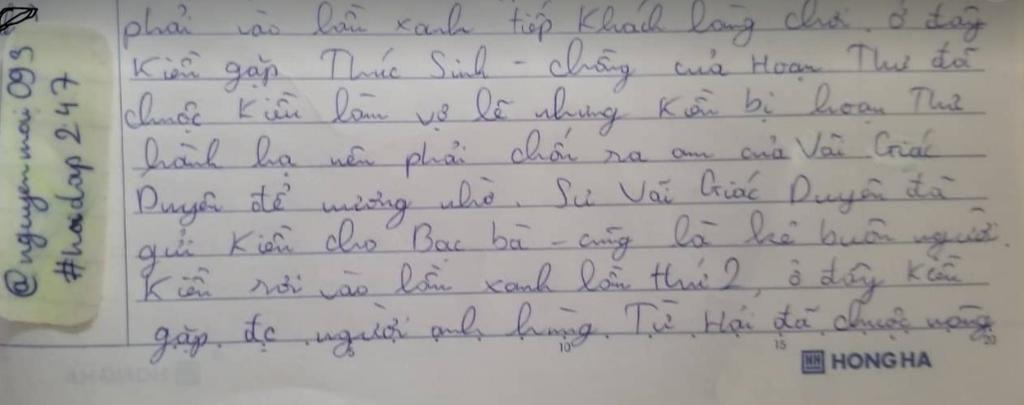 phải vào lầu xanh tiếp khách làng chơi. ở đây
Kiều gặp Thúc Sinh - chồng của Hoạn Thư đã
chuộc Kiều làm vợ lẽ nhưng Kiều bị hoạn Thư
hành hạ nên phải chốn ra am của Vãi Giác
Duyên để nương nhờ. Sư Vãi Giác Duyên đã
gửi Kiều cho Bạc bà - cũng là kẻ buôn người.
Kiều rơi vào lầu xanh lần thứ 2, ở đây Kiều
gặp đc người anh hùng Từ Hải đã chuộc nàng
5 10 15 20
HONG HA
@nguyenmai093
#hoidap247